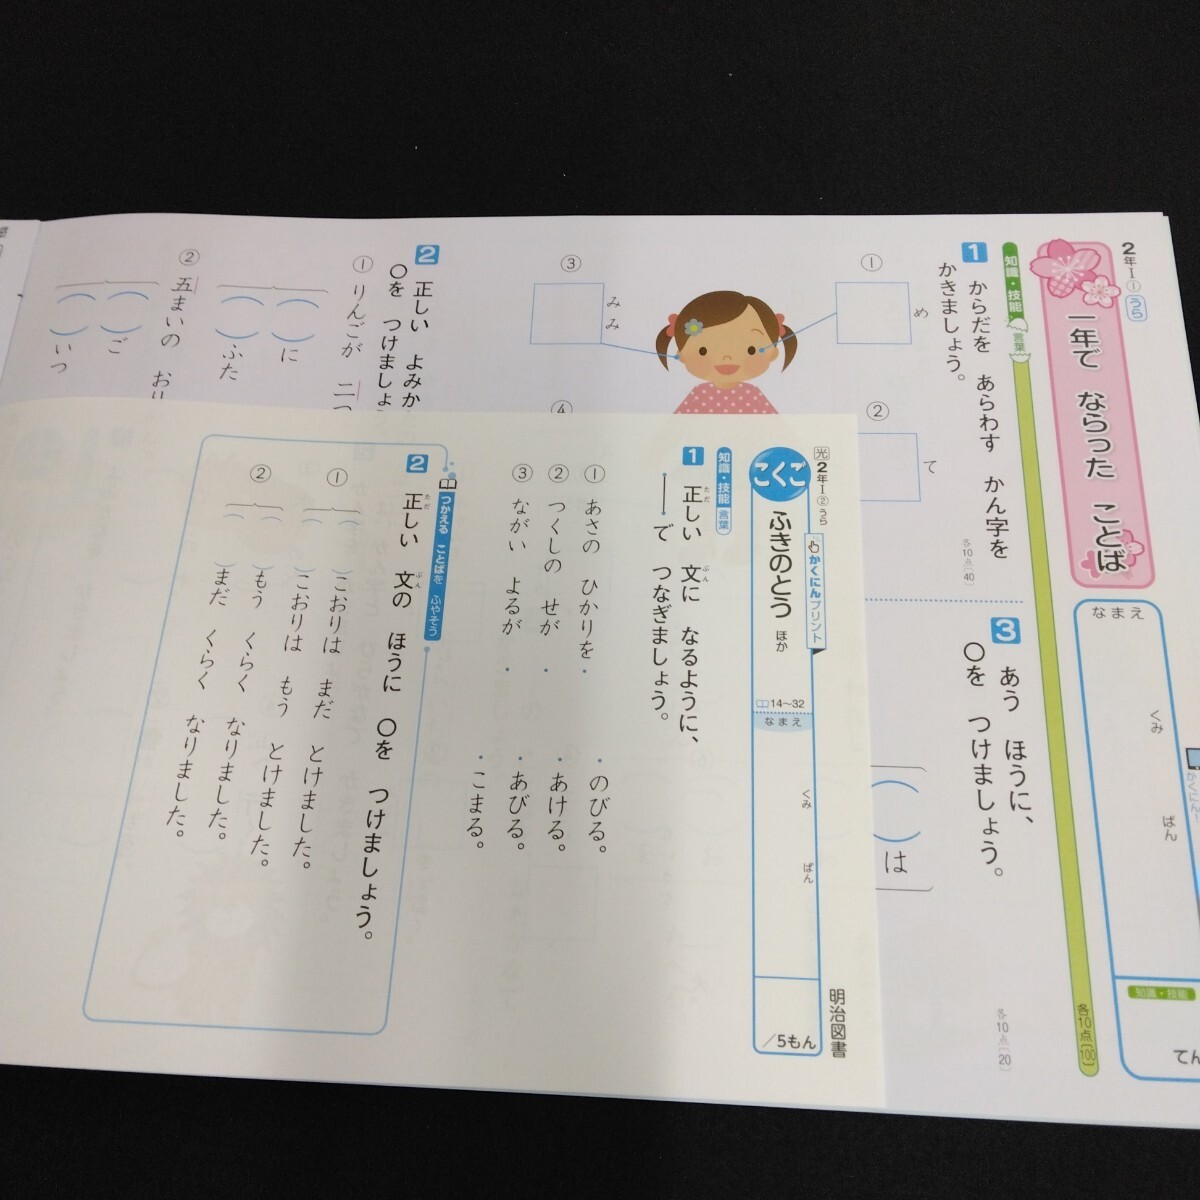 2年Ⅰ① うら
一年で ならった ことば
なまえ
くみ
ばん
かくにん!
知識・技能
てん
知識・技能 言葉
各10点(100)
1 からだを あらわす かん字を
かきましょう。
各10点(40)
① め
② て
③ みみ
④
2 正しい よみか
○を つけましょ
① りんごが 二つ
に
ふた
② 五まいの おり
ご
いつ
3 あう ほうに、
○を つけましょう。
各10点(20)
は
光 2年Ⅰ② うら
かくにんプリント
こくご
ふきのとう ほか
14〜32
なまえ
くみ
ばん
/5もん
明治図書
知識・技能 言葉
1 正しい 文に なるように、
ただ
ぶん
── で つなぎましょう。
① あさの ひかりを・
② つくしの せが ・
③ ながい よるが ・
・のびる。
・あける。
・あびる。
・こまる。
つかえる ことばを ふやそう
2 正しい 文の ほうに ○を つけましょう。
ただ
ぶん
① ( )こおりは まだ とけました。
( )こおりは もう とけました。
② ( )もう くらく なりました。
( )まだ くらく なりました。